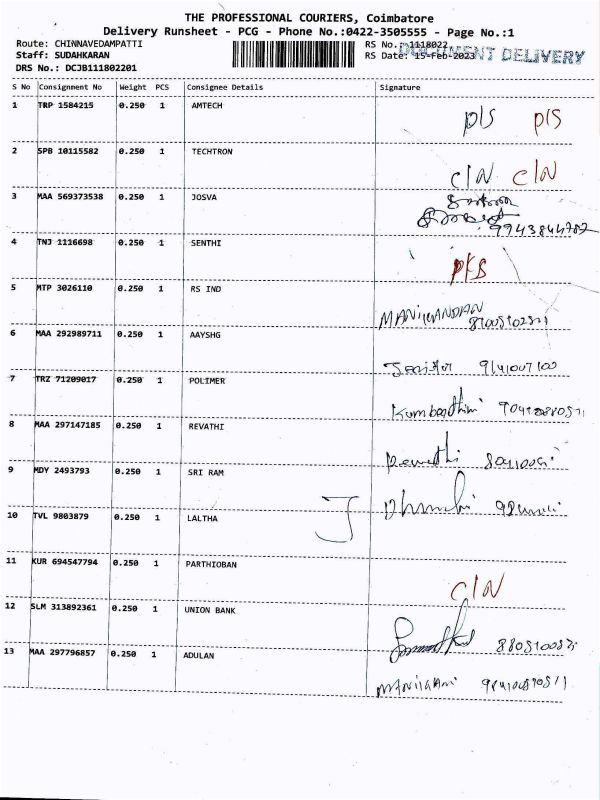 THE PROFESSIONAL COURIERS, Coimbatore
Delivery Runsheet - PCG - Phone No.:0422-3505555 - Page No.:1
Route: CHINNAVEDAMPATTI
RS No.: 1118022
DOCUMENT DELIVERY
Staff: SUDAHKARAN
RS Date: 15-Feb-2023
DRS No.: DCJB111802201
S No Consignment No Weight PCS Consignee Details Signature
1 TRP 1584215 0.250 1 AMTECH
P/S P/S
2 SPB 10115582 0.250 1 TECHTRON
C/N C/N
3 MAA 569373538 0.250 1 JOSVA
4 TNJ 1116698 0.250 1 SENTHI
5 MTP 3026110 0.250 1 RS IND
MANIKANDAN
6 MAA 292989711 0.250 1 AAYSHG
7 TRZ 71209017 0.250 1 POLIMER
8 MAA 297147185 0.250 1 REVATHI
Revathi
9 MDY 2493793 0.250 1 SRI RAM
10 TVL 9803879 0.250 1 LALTHA
11 KUR 694547794 0.250 1 PARTHIOBAN
C/N
12 SLM 313892361 0.250 1 UNION BANK
13 MAA 297796857 0.250 1 ADULAN